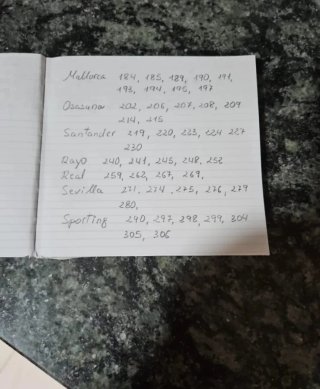 Mallorca 184, 185, 189, 190, 191,
193, 194, 195, 197
Osasuna 202, 206, 207, 208, 209
214, 215
Santander 219, 220, 223, 224 227
230
Rayo 240, 241, 245, 248, 252
Real 259, 262, 267, 269,
Sevilla 271, 274, 275, 276, 279
280,
Sporting 290, 297, 298, 299, 304
305, 306